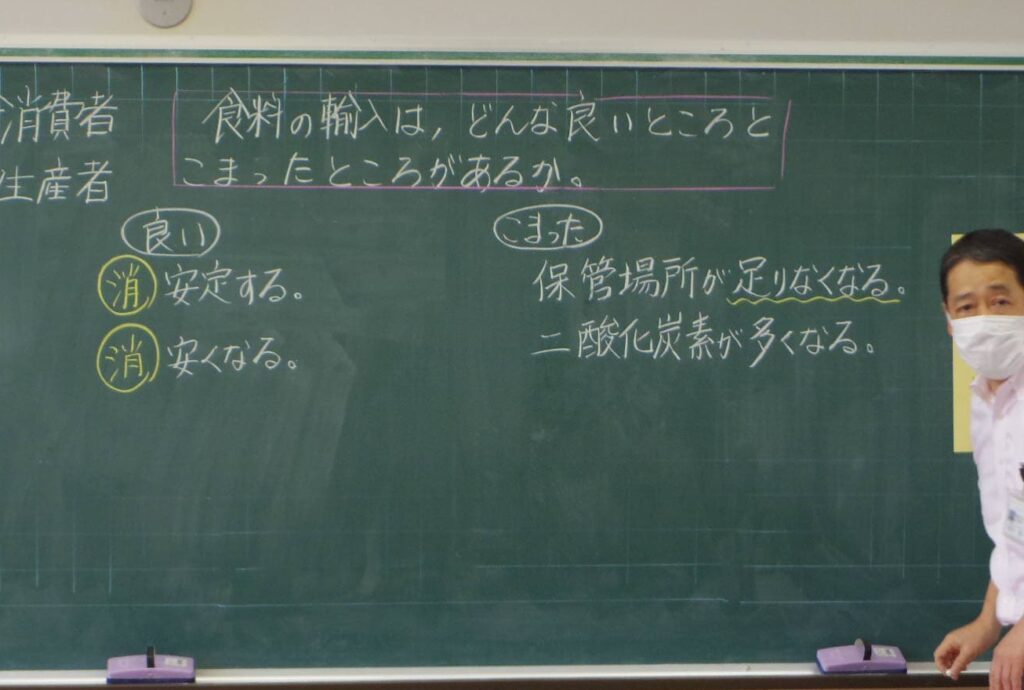 消費者
生産者
食料の輸入は，どんな良いところと
こまったところがあるか。
良い
消 安定する。
消 安くなる。
こまった
保管場所が足りなくなる。
二酸化炭素が多くなる。